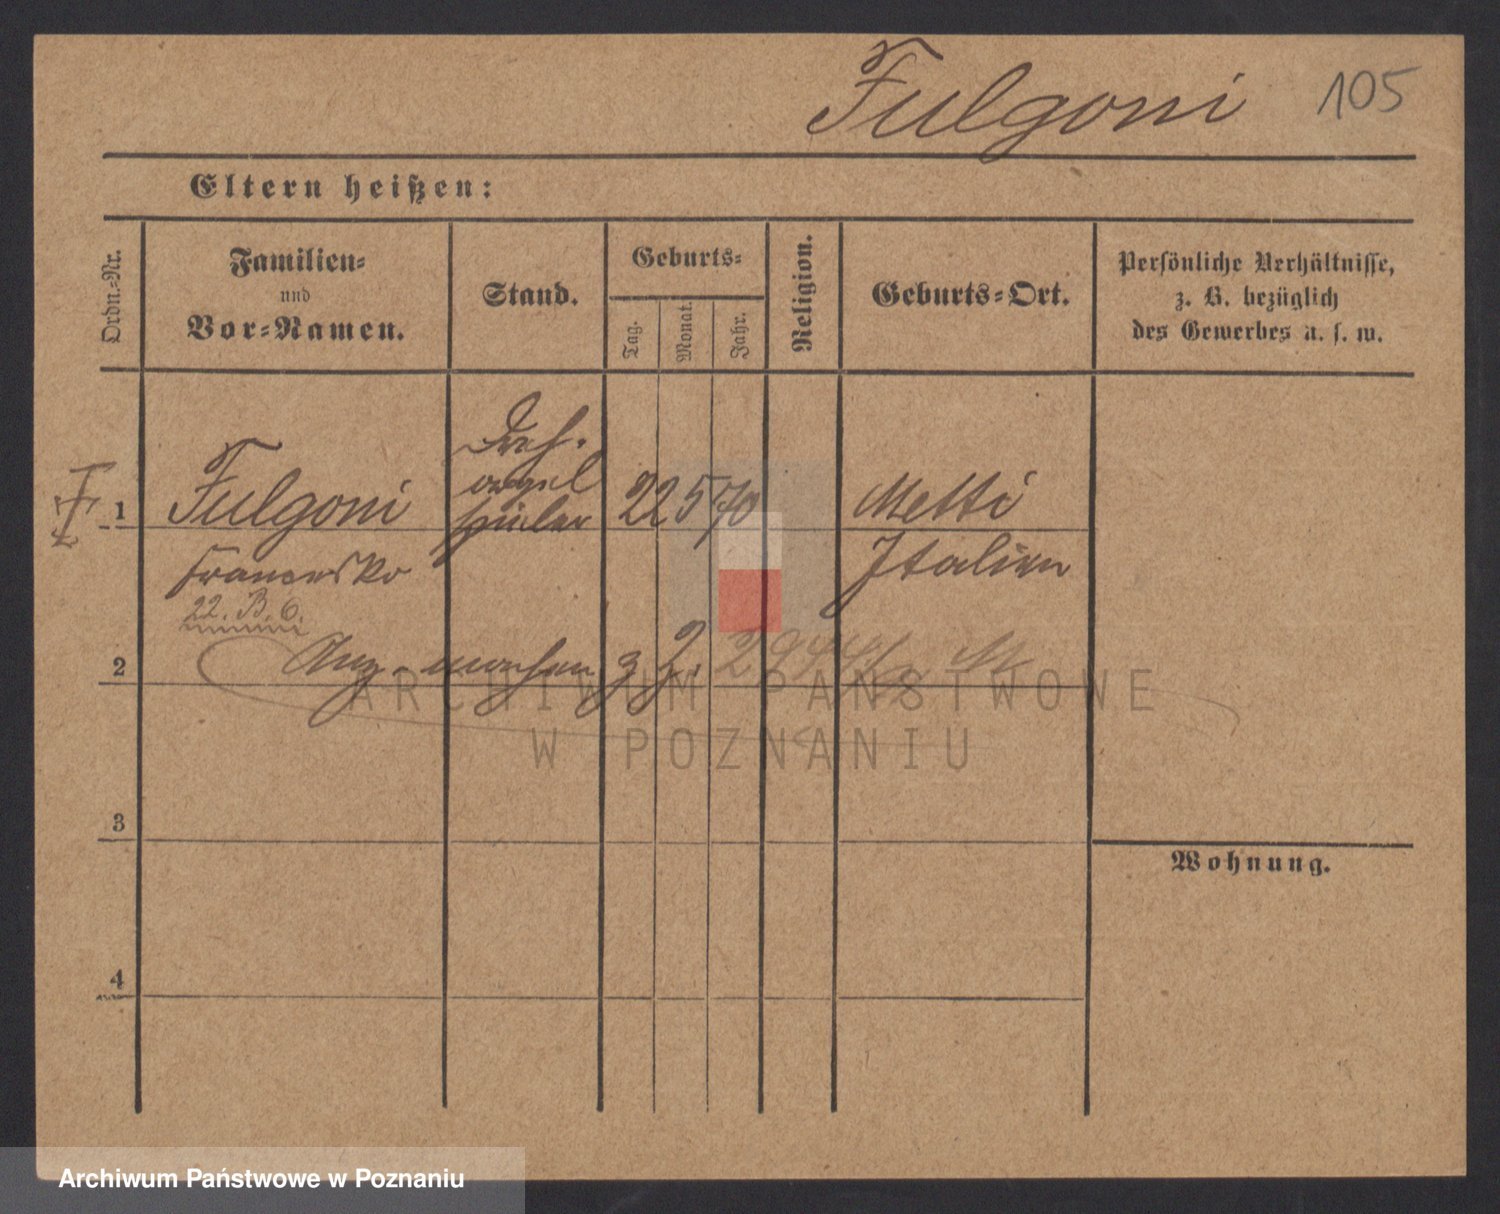 Fulgoni 105
Eltern heißen:
Ordn.-Nr.
Familien-
und
Vor-Namen.
Stand.
Geburts-
Tag.
Monat.
Jahr.
Religion.
Geburts-Ort.
Persönliche Verhältnisse,
z. B. bezüglich
des Gewerbes u. s. w.
1
Fulgoni
Francesko
22. B. 6.
Dreh-
orgel
spieler
22 5 70
Metti
Italien
2
3
Wohnung.
4
ARCHIWUM PAŃSTWOWE
W POZNANIU
Archiwum Państwowe w Poznaniu